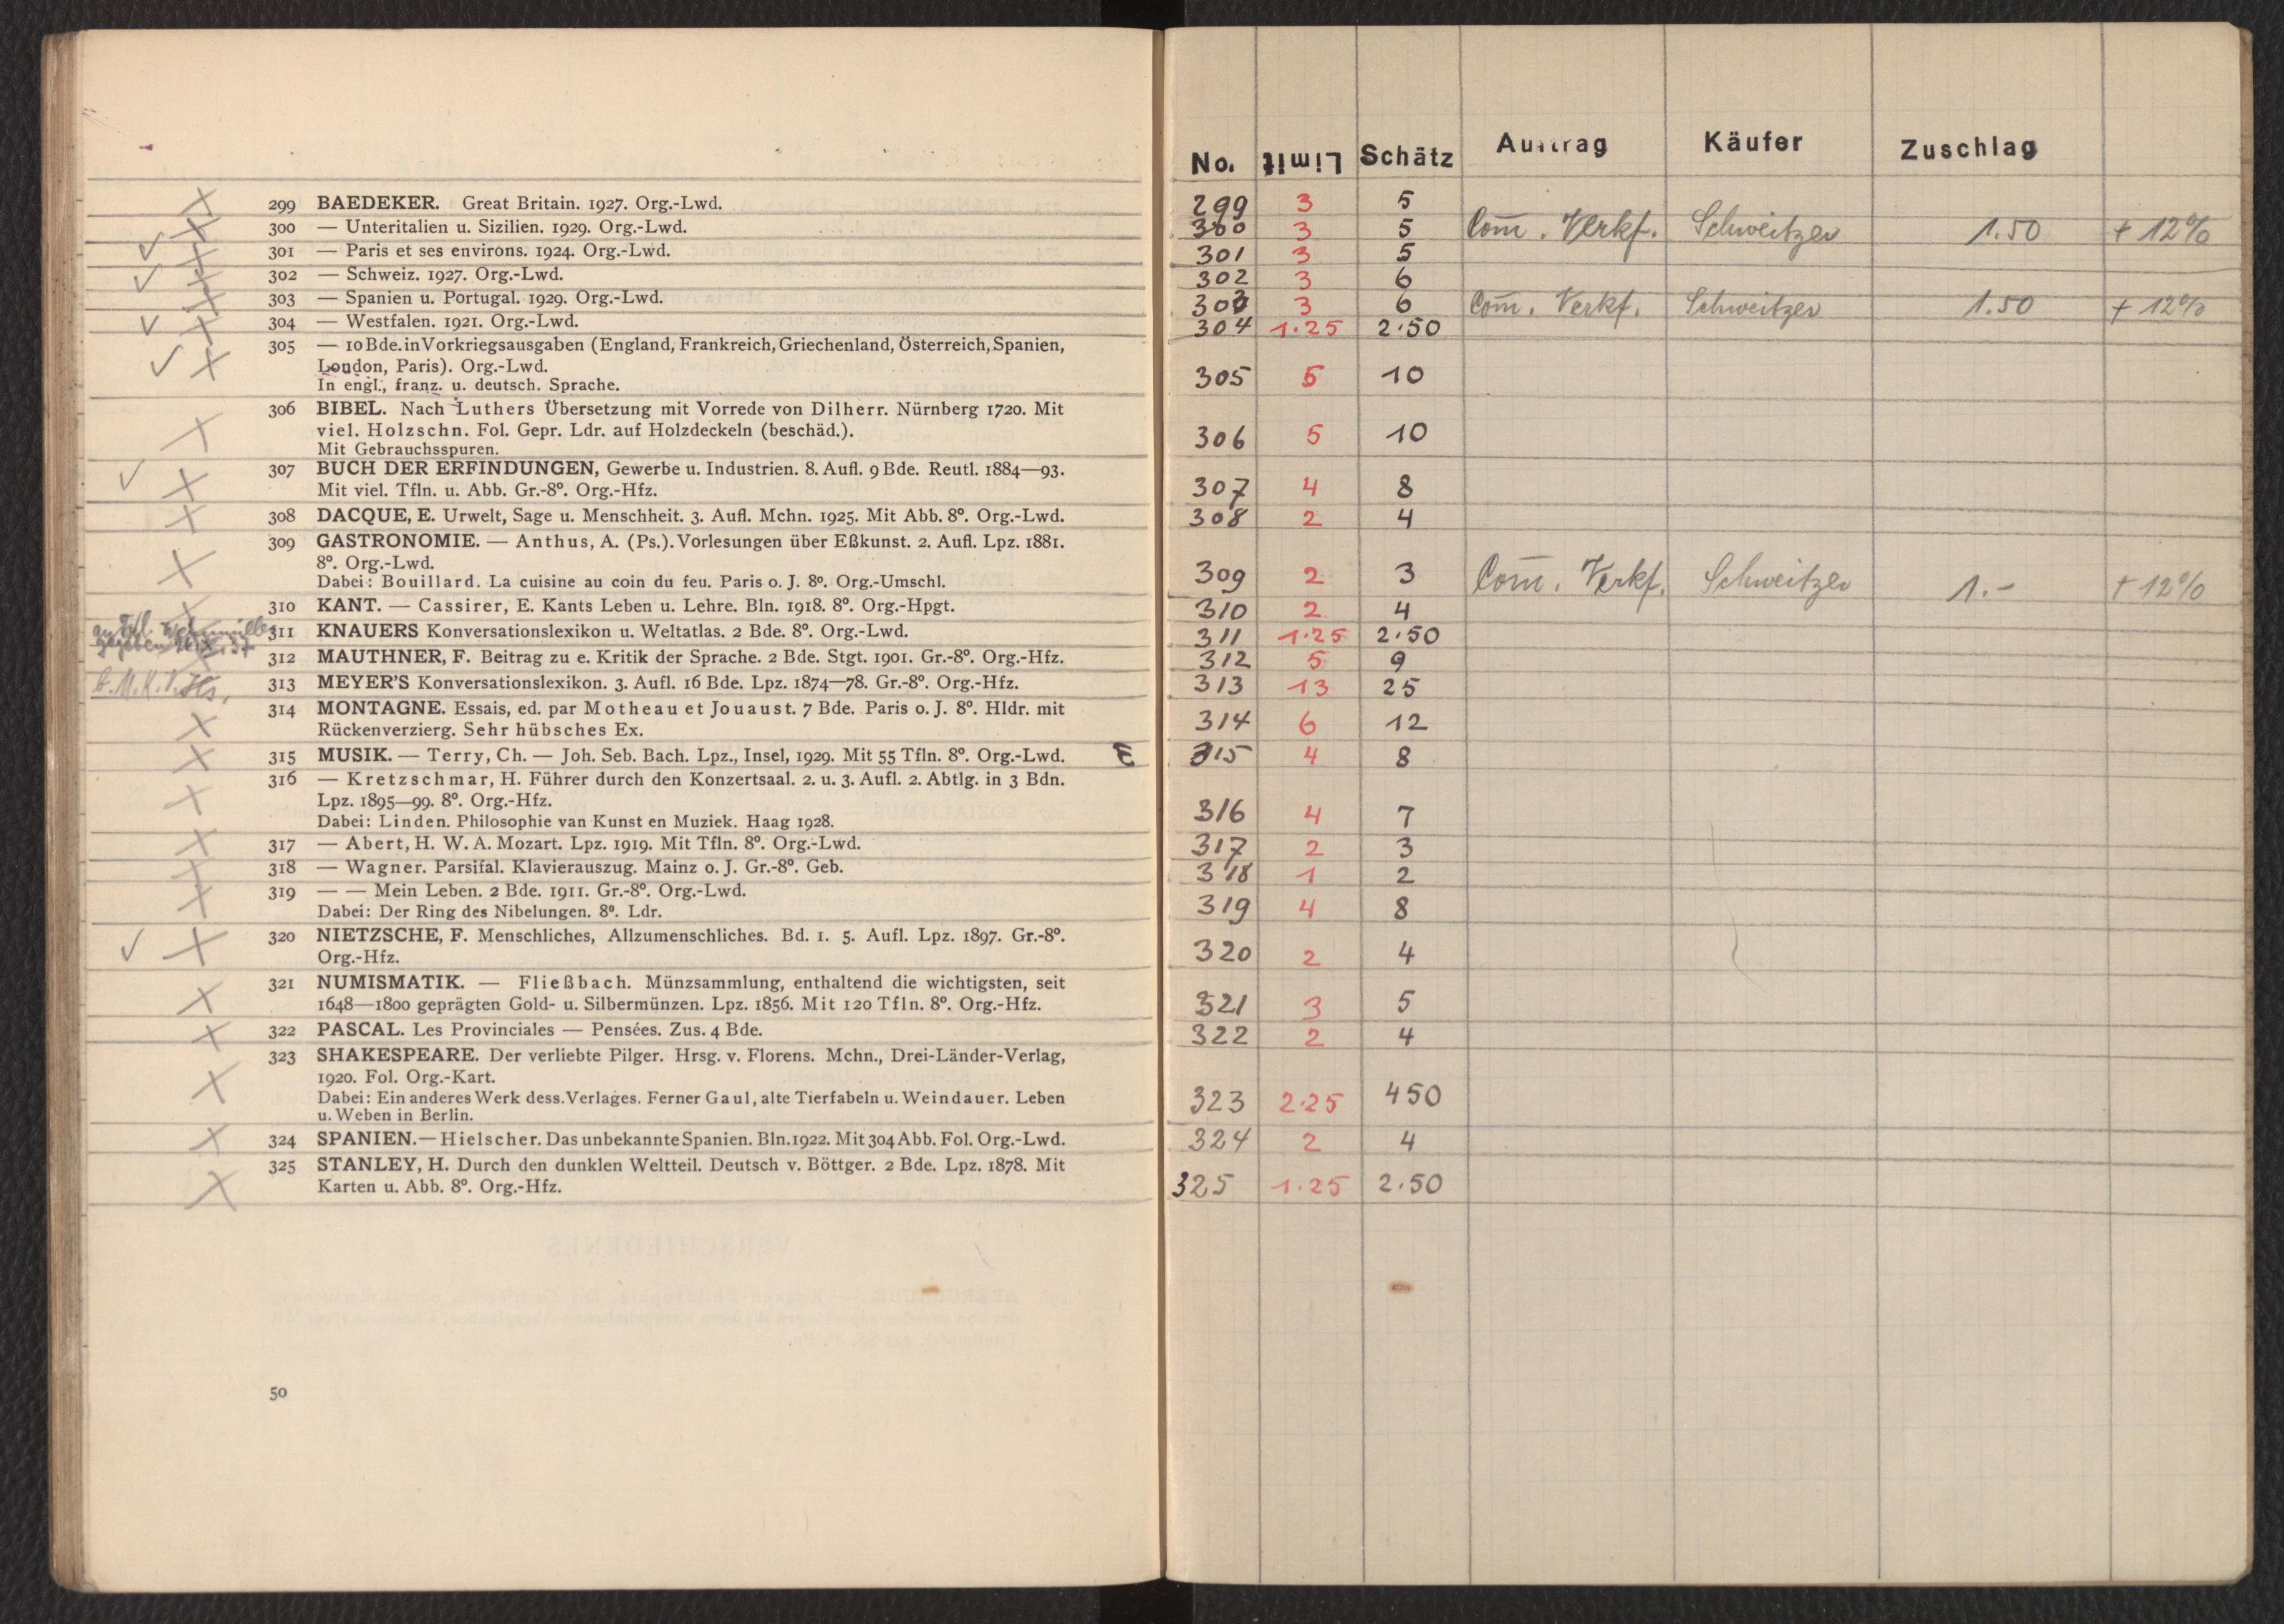 299 BAEDEKER. Great Britain. 1927. Org.-Lwd.
300 — Unteritalien u. Sizilien. 1929. Org.-Lwd.
301 — Paris et ses environs. 1924. Org.-Lwd.
302 — Schweiz. 1927. Org.-Lwd.
303 — Spanien u. Portugal. 1929. Org.-Lwd.
304 — Westfalen. 1921. Org.-Lwd.
305 — 10 Bde. in Vorkriegsausgaben (England, Frankreich, Griechenland, Österreich, Spanien,
London, Paris). Org.-Lwd.
In engl., franz. u. deutsch. Sprache.
306 BIBEL. Nach Luthers Übersetzung mit Vorrede von Dilherr. Nürnberg 1720. Mit
viel. Holzschn. Fol. Gepr. Ldr. auf Holzdeckeln (beschäd.).
Mit Gebrauchsspuren.
307 BUCH DER ERFINDUNGEN, Gewerbe u. Industrien. 8. Aufl. 9 Bde. Reutl. 1884—93.
Mit viel. Tfln. u. Abb. Gr.-8°. Org.-Hfz.
308 DACQUE, E. Urwelt, Sage u. Menschheit. 3. Aufl. Mchn. 1925. Mit Abb. 8°. Org.-Lwd.
309 GASTRONOMIE. — Anthus, A. (Ps.). Vorlesungen über Eßkunst. 2. Aufl. Lpz. 1881.
8°. Org.-Lwd.
Dabei: Bouillard. La cuisine au coin du feu. Paris o. J. 8°. Org.-Umschl.
310 KANT. — Cassirer, E. Kants Leben u. Lehre. Bln. 1918. 8°. Org.-Hpgt.
311 KNAUERS Konversationslexikon u. Weltatlas. 2 Bde. 8°. Org.-Lwd.
gegeben
312 MAUTHNER, F. Beitrag zu e. Kritik der Sprache. 2 Bde. Stgt. 1901. Gr.-8°. Org.-Hfz.
313 MEYER'S Konversationslexikon. 3. Aufl. 16 Bde. Lpz. 1874—78. Gr.-8°. Org.-Hfz.
314 MONTAGNE. Essais, ed. par Motheau et Jouaust. 7 Bde. Paris o. J. 8°. Hldr. mit
Rückenverzierg. Sehr hübsches Ex.
315 MUSIK. — Terry, Ch. — Joh. Seb. Bach. Lpz., Insel, 1929. Mit 55 Tfln. 8°. Org.-Lwd.
316 — Kretzschmar, H. Führer durch den Konzertsaal. 2. u. 3. Aufl. 2. Abtlg. in 3 Bdn.
Lpz. 1895—99. 8°. Org.-Hfz.
Dabei: Linden. Philosophie van Kunst en Muziek. Haag 1928.
317 — Abert, H. W. A. Mozart. Lpz. 1919. Mit Tfln. 8°. Org.-Lwd.
318 — Wagner. Parsifal. Klavierauszug. Mainz o. J. Gr.-8°. Geb.
319 — — Mein Leben. 2 Bde. 1911. Gr.-8°. Org.-Lwd.
Dabei: Der Ring des Nibelungen. 8°. Ldr.
320 NIETZSCHE, F. Menschliches, Allzumenschliches. Bd. 1. 5. Aufl. Lpz. 1897. Gr.-8°.
Org.-Hfz.
321 NUMISMATIK. — Fließbach. Münzsammlung, enthaltend die wichtigsten, seit
1648—1800 geprägten Gold- u. Silbermünzen. Lpz. 1856. Mit 120 Tfln. 8°. Org.-Hfz.
322 PASCAL. Les Provinciales — Pensées. Zus. 4 Bde.
323 SHAKESPEARE. Der verliebte Pilger. Hrsg. v. Florens. Mchn., Drei-Länder-Verlag,
1920. Fol. Org.-Kart.
Dabei: Ein anderes Werk dess. Verlages. Ferner Gaul, alte Tierfabeln u. Weindauer. Leben
u. Weben in Berlin.
324 SPANIEN. — Hielscher. Das unbekannte Spanien. Bln. 1922. Mit 304 Abb. Fol. Org.-Lwd.
325 STANLEY, H. Durch den dunklen Weltteil. Deutsch v. Böttger. 2 Bde. Lpz. 1878. Mit
Karten u. Abb. 8°. Org.-Hfz.
50
No. Limit Schätz Auftrag Käufer Zuschlag
299 3 5
300 3 5 Com̄. Verkf. Schweitzer 1.50 + 12%
301 3 5
302 3 6
303 3 6 Com̄. Verkf. Schweitzer 1.50 + 12%
304 1.25 2.50
305 5 10
306 5 10
307 4 8
308 2 4
309 2 3 Com̄. Verkf. Schweitzer 1.- + 12%
310 2 4
311 1.25 2.50
312 5 9
313 13 25
314 6 12
315 4 8
316 4 7
317 2 3
318 1 2
319 4 8
320 2 4
321 3 5
322 2 4
323 2.25 450
324 2 4
325 1.25 2.50